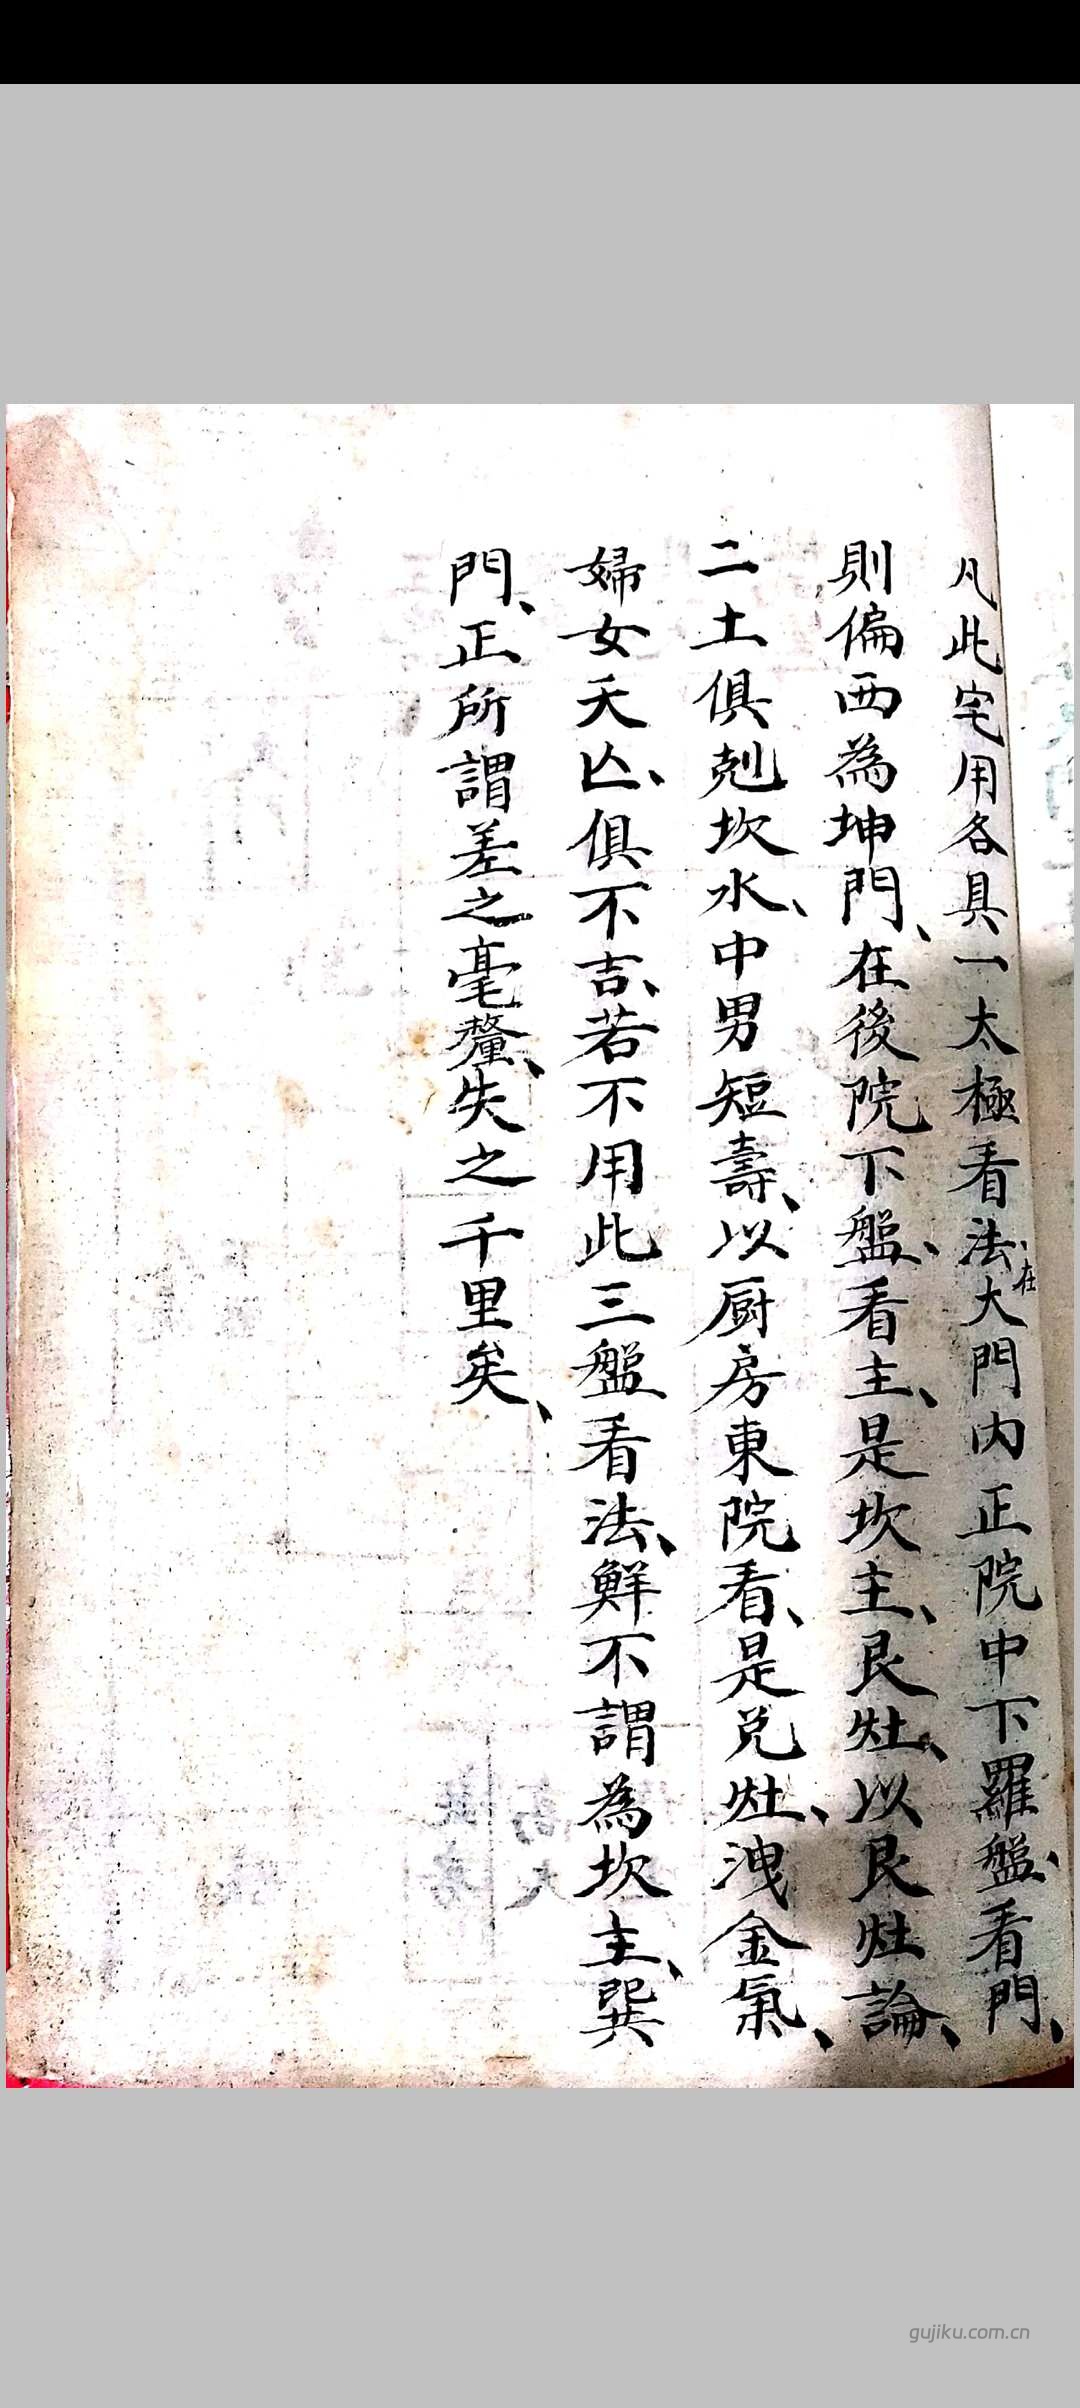 凡此宅用各具一太極看法、在大門內正院中下羅盤、看門、
則偏西為坤門、在後院下盤、看主、是坎主、艮灶、以艮灶論、
二土俱剋坎水、中男短壽、以厨房東院看、是兌灶、洩金氣、
婦女夭亾、俱不吉、若不用此三盤看法、鮮不謂為坎主、巽
門、正所謂差之毫釐、失之千里矣、
gujiku.com.cn